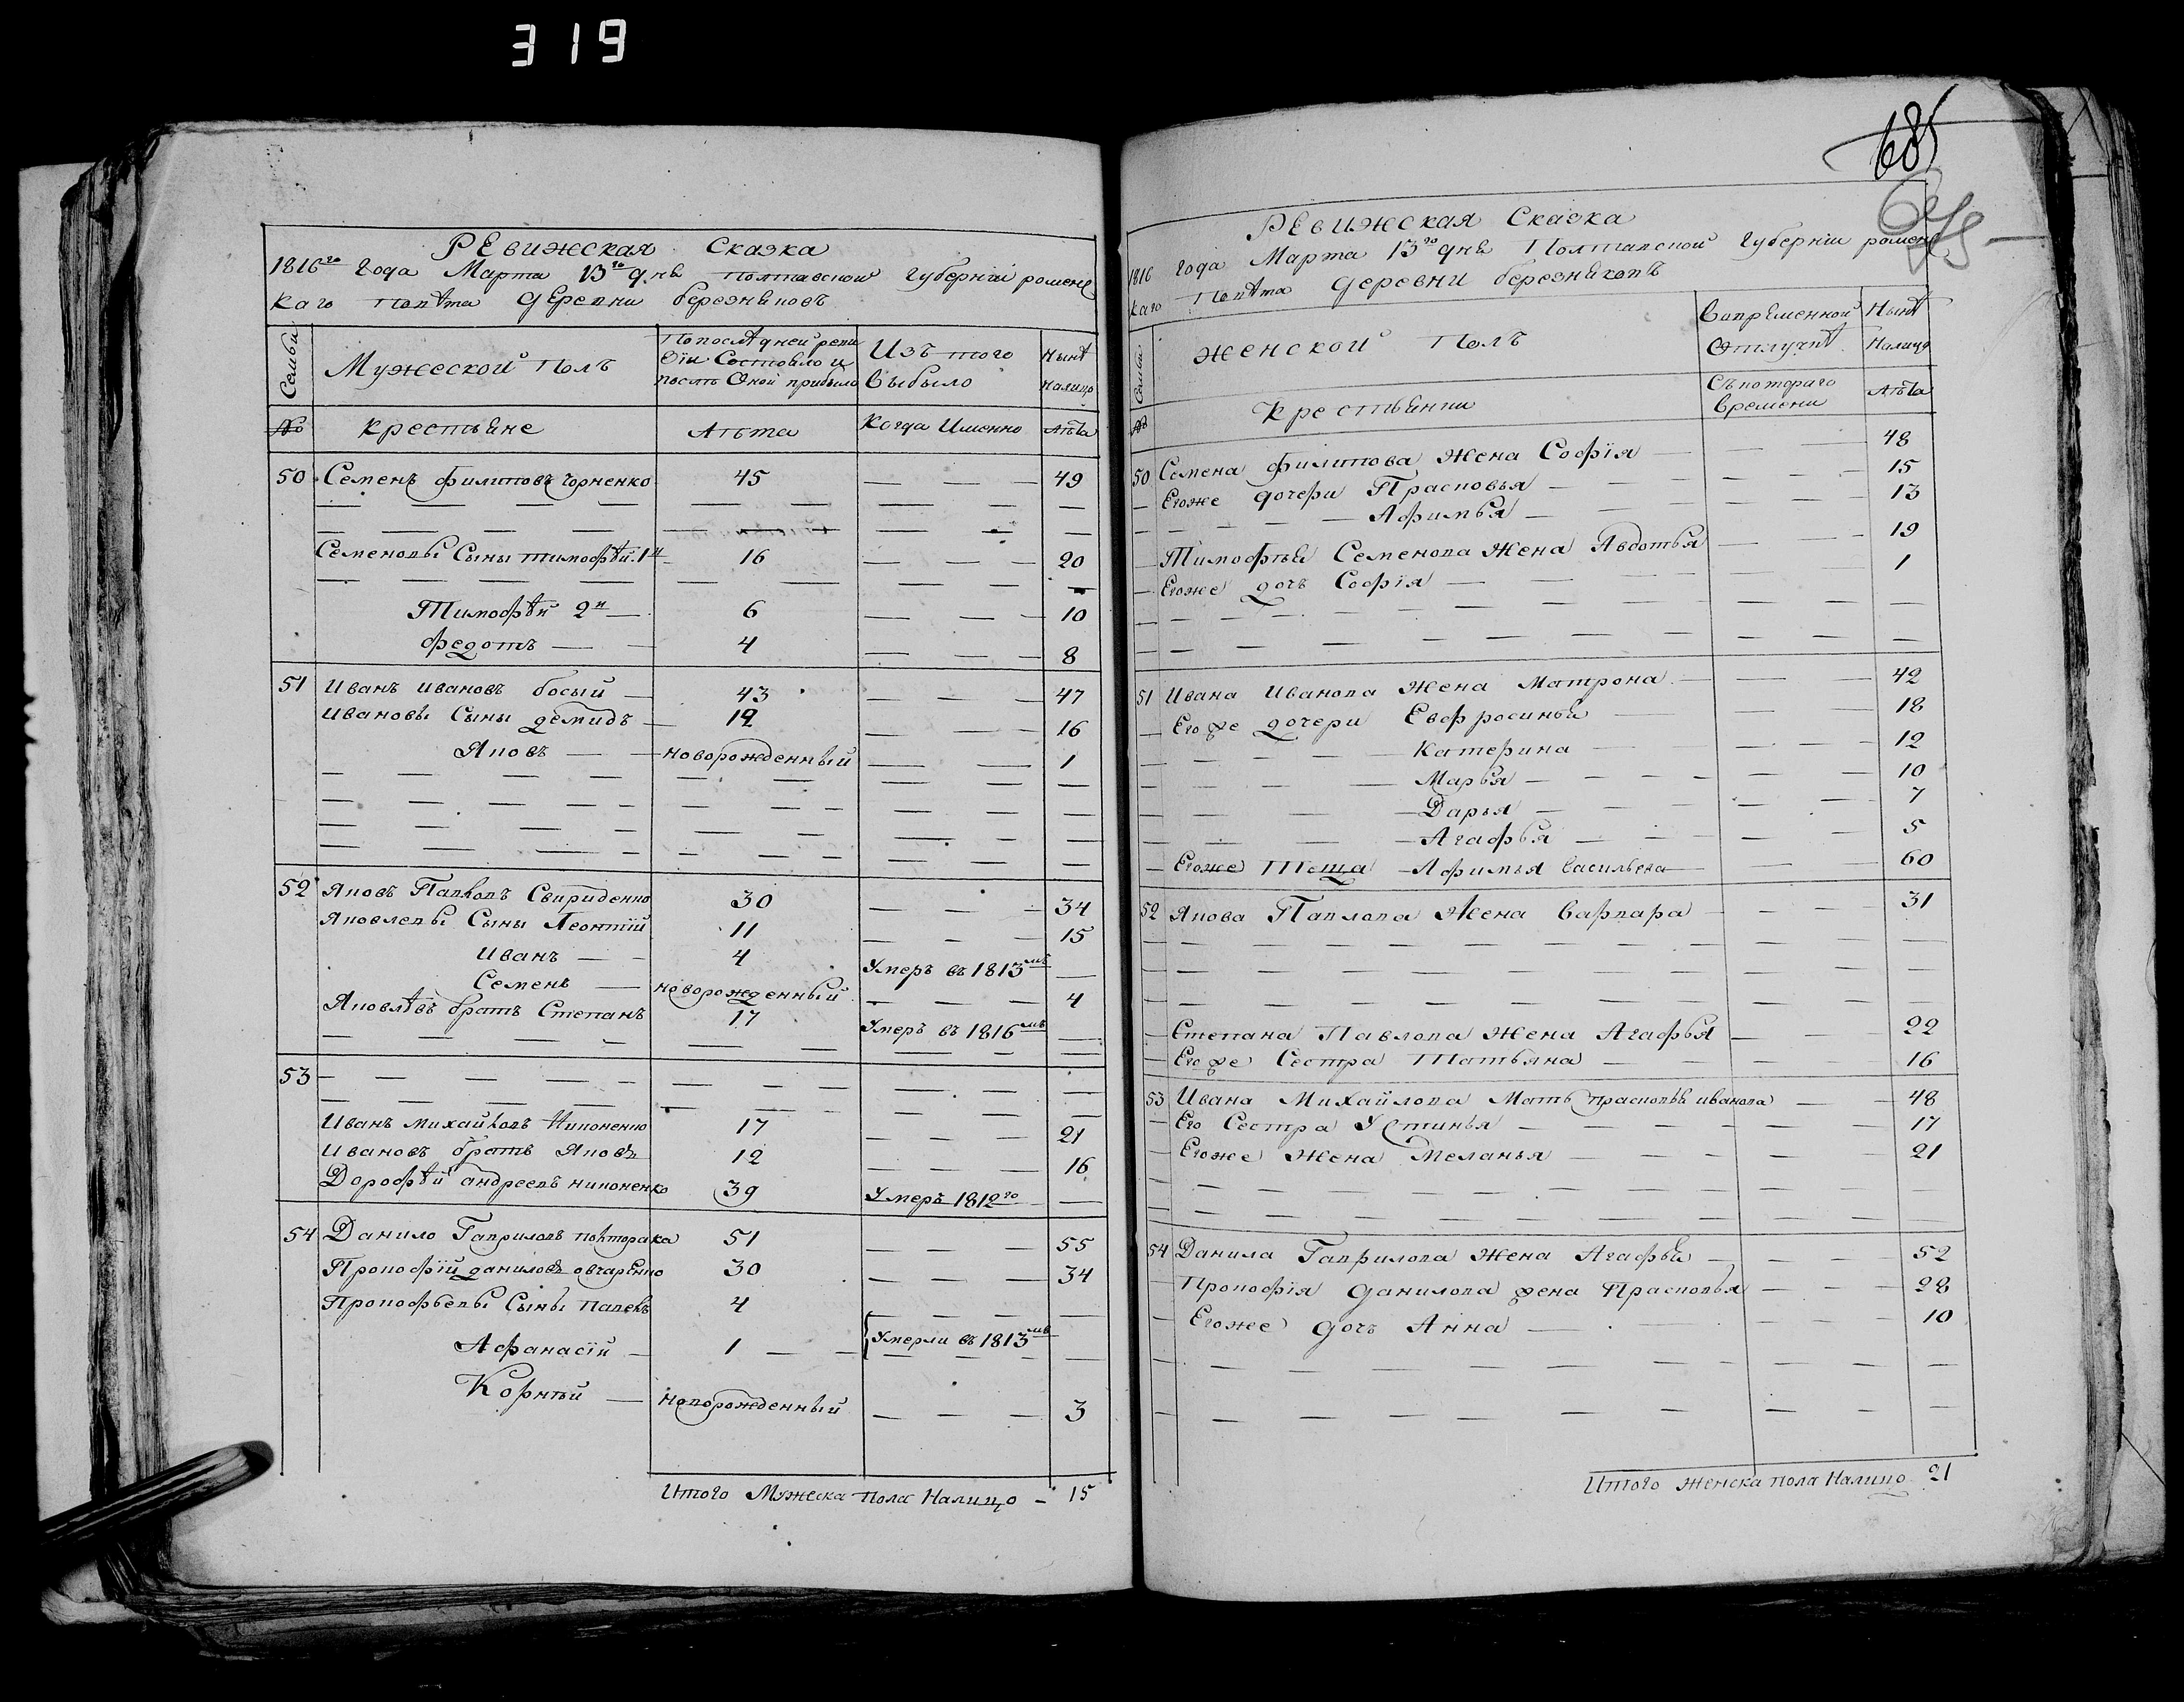 319
РЕвижская Сказка
1816го года Марта 13го днѣ Полтавской губерніи роменс
каго повѣта дЕревни березняковъ
Семьи
Мужеской полъ
По послѣдней реви
зіи Состояло и
послѣ Оной прибыло
Изъ того
выбыло
Нынѣ
налицо
№
крестьяне
лѣта
Когда Именно
лѣта
50 Семенъ филиповъ горненко 45 — — — 49
Семеновы Сыны тимофѣй 1й 16 — — — 20
Тимофѣй 2й — 6 — — — 10
федотъ — — 4 — — — 8
51 Иванъ ивановъ босый — 43 — — — 47
Ивановы Сыны демидъ — 12 — — — 16
Яковъ — — новорожденный — — — 1
52 Яковъ Павловъ Свириденко 30 — — — 34
Яковлевы Сыны Леонтій 11 — — — 15
Иванъ — — 4 Умеръ въ 1813мъ —
Семенъ — новорожденный — — — 4
Яковлѣвъ братъ Степанъ 17 Умеръ въ 1816мъ —
53 — — — — —
Иванъ михайловъ Никоненко 17 — — — 21
Ивановъ братъ Яковъ 12 — — — 16
Дорофѣй андреевъ никоненко 39 Умеръ 1812го —
54 Данило Гавриловъ повторака 51 — — — 55
Прокофій даниловъ овчарЕнко 30 — — — 34
Прокофьевы Сыны павелъ 4 — — — —
Афанасій — 1 — — Умерли въ 1813мъ —
Корнѣй — новорожденный — — — 3
Итого Мужеска пола Налицо — 15
685
РЕвижская Сказка
1816 года Марта 13го днѣ Полтавской губерніи роменс
каго Повѣта деревни березняковъ
Семьи
женской Полъ
Вовременной
Отлучкѣ
Нынѣ
Налицо
№
крестьянки
Съ котораго
времени
лѣта
50 Семена филипова Жена Софія — — — 48
— Егоже дочери Прасковья — — — 15
— — — — Афимья — — — 13
— Тимофѣя Семенова Жена Авдотья — — — 19
— Егоже дочь Софія — — — 1
51 Ивана Иванова Жена Матрона — — — 42
— Его же дочери Евфросинья — — — 18
— — — — Катерина — — — 12
— — — — Марья — — — 10
— — — — Дарья — — — 7
— — — — Агафья — — — 5
— Егоже Теща — Афимья васильева — — 60
52 Якова Павлова Жена Варвара — — — 31
— Степана Павлова Жена Агафья — — — 22
— Его же Сестра Татьяна — — — 16
53 Ивана Михайлова Мать прасковья иванова — — 48
— Его Сестра Устинья — — — 17
— Егоже Жена Меланья — — — 21
54 Данила Гаврилова Жена Агафья — — — 52
— Прокофія данилова жена Прасковья — — — 28
— Егоже дочъ Анна — — — 10
Итого женска пола Налицо 21